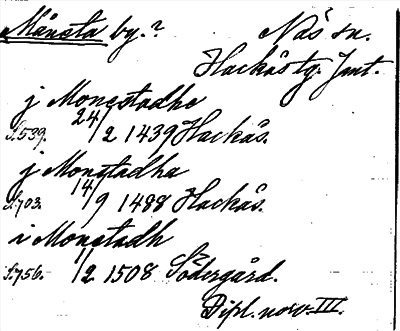 Månsta by.? Näs sn.
Hackås tg. Jmt.
j Monestadhe
S.539. 24/2 1439 Hackås.
j Monstadha
S.703. 14/9 1488 Hackås.
i Monstadh
S.756. 1/2 1508 Södergård.
Dipl. norv. III.